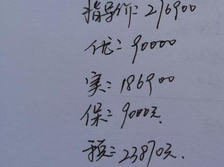 指导价：276900
优：90000
实：186900
保：9000元
预：23890元